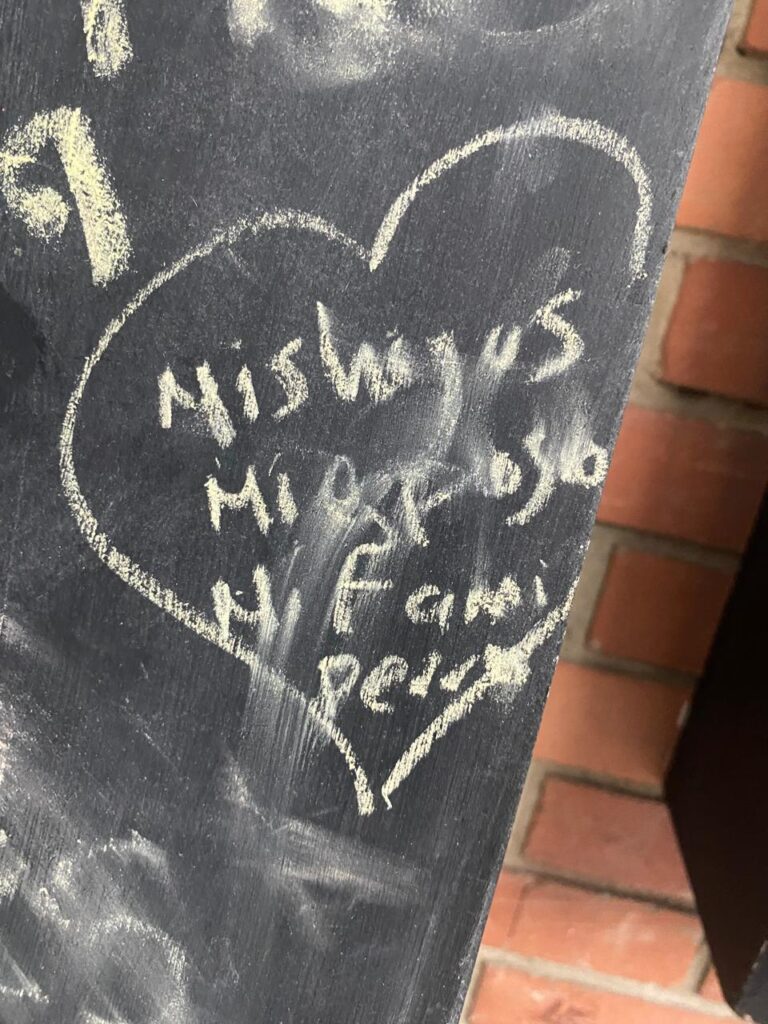 Mis hijos
Mi esposo
Mi Fami
perro